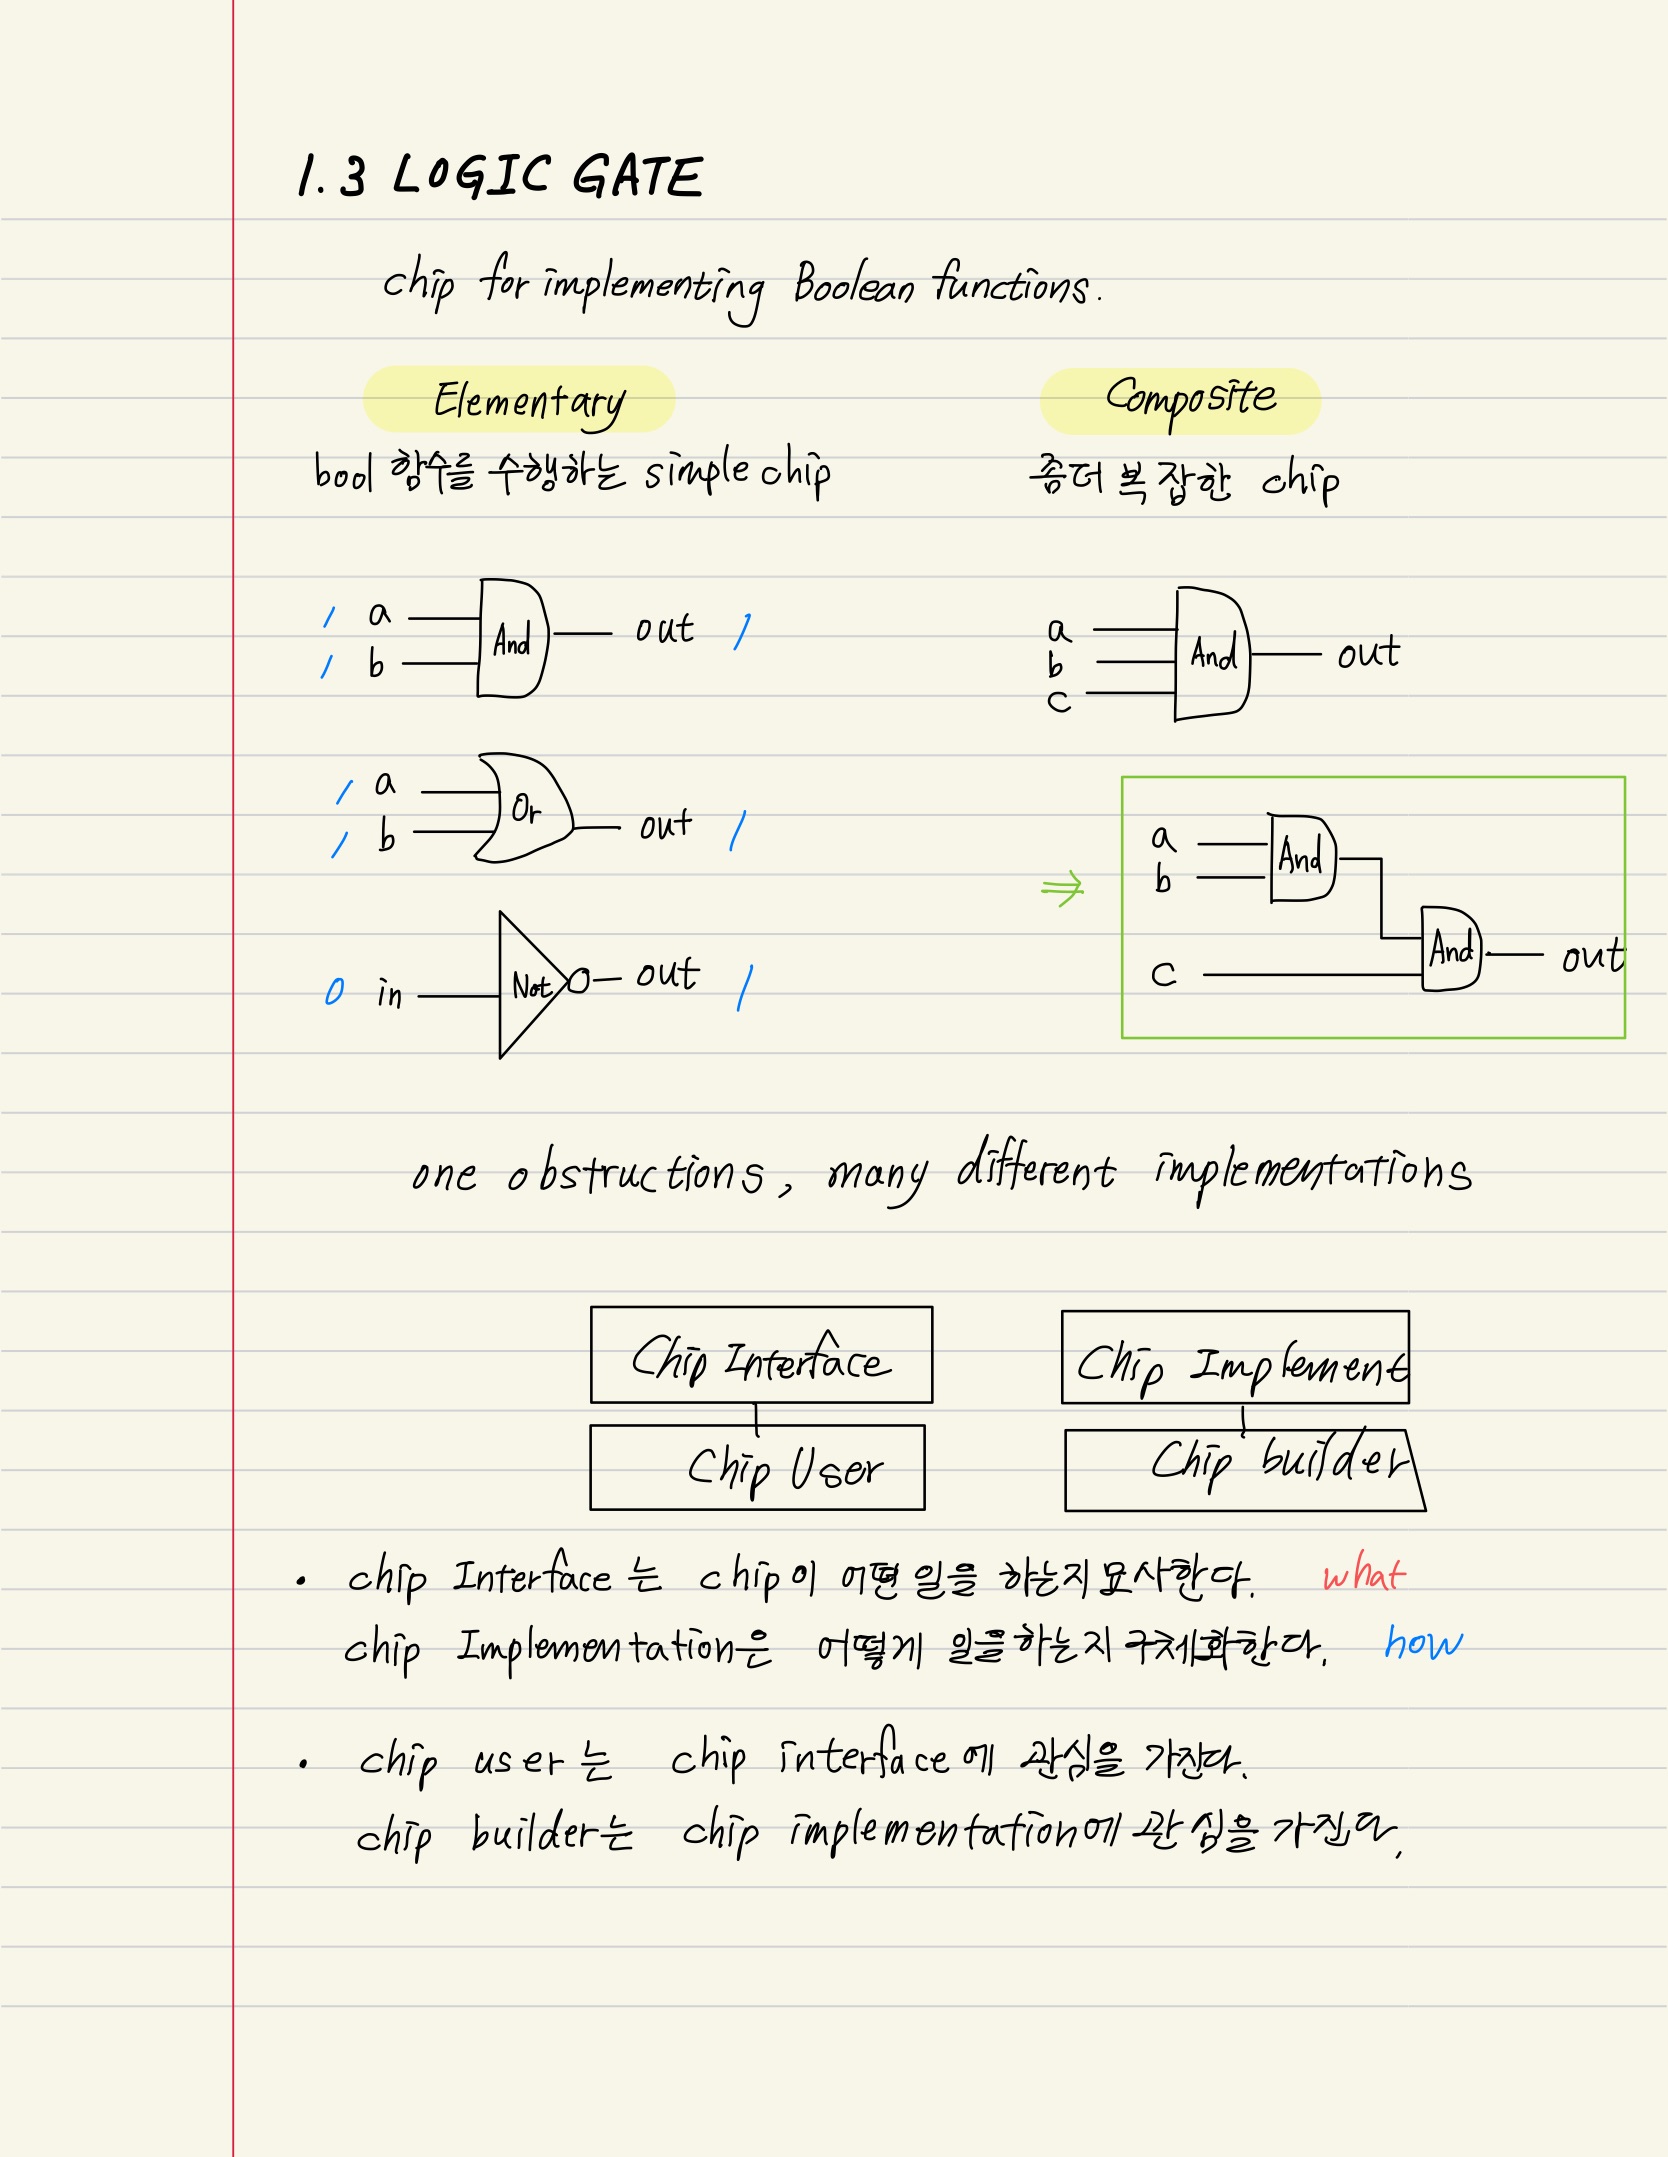 1.3 LOGIC GATE
chip for implementing Boolean functions.
Elementary
bool 함수를 수행하는 simple chip
1 a
1 b
And
out 1
1 a
1 b
Or
out 1
0 in
Not
out 1
Composite
좀더 복잡한 chip
a
b
c
And
out
⇒
a
b
And
c
And
out
one obstructions, many different implementations
Chip Interface
Chip User
Chip Implement
Chip builder
• chip Interface는 chip이 어떤 일을 하는지 묘사한다. what
chip Implementation은 어떻게 일을 하는지 구체화한다. how
• chip user는 chip interface에 관심을 가진다.
chip builder는 chip implementation에 관심을 가진다.